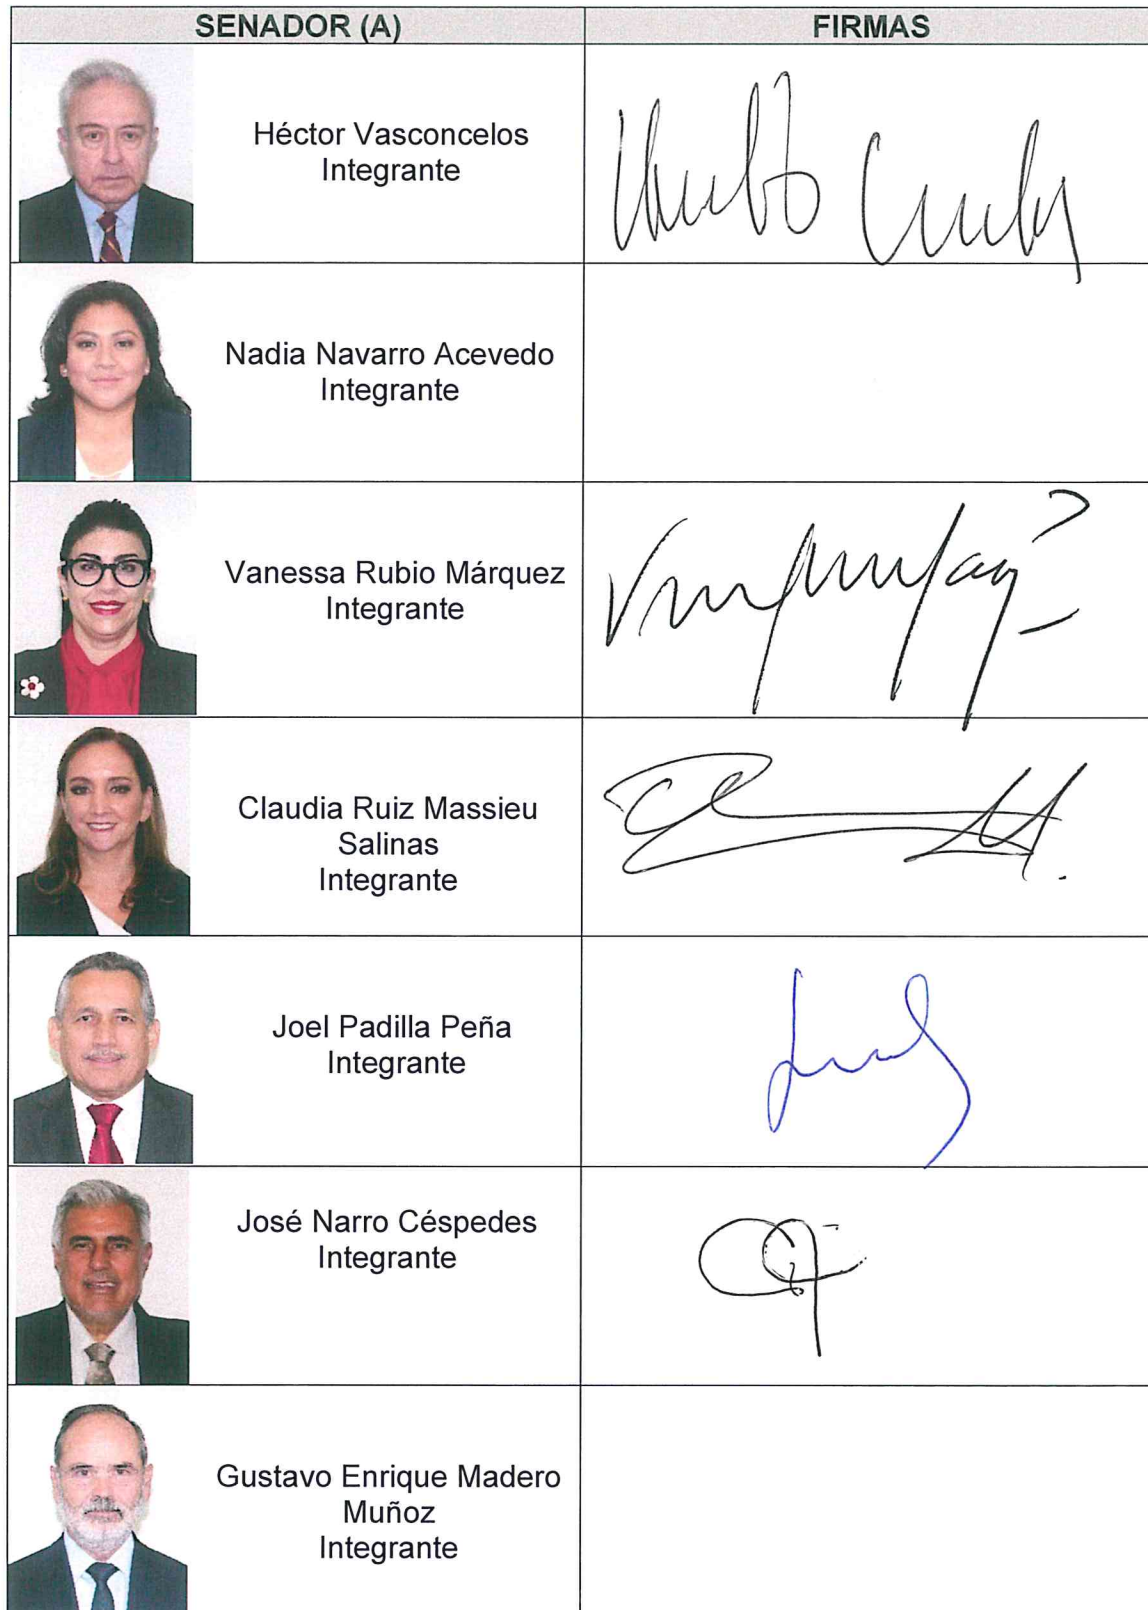 SENADOR (A) FIRMAS
Héctor Vasconcelos
Integrante
Nadia Navarro Acevedo
Integrante
Vanessa Rubio Márquez
Integrante
Claudia Ruiz Massieu
Salinas
Integrante
Joel Padilla Peña
Integrante
José Narro Céspedes
Integrante
Gustavo Enrique Madero
Muñoz
Integrante